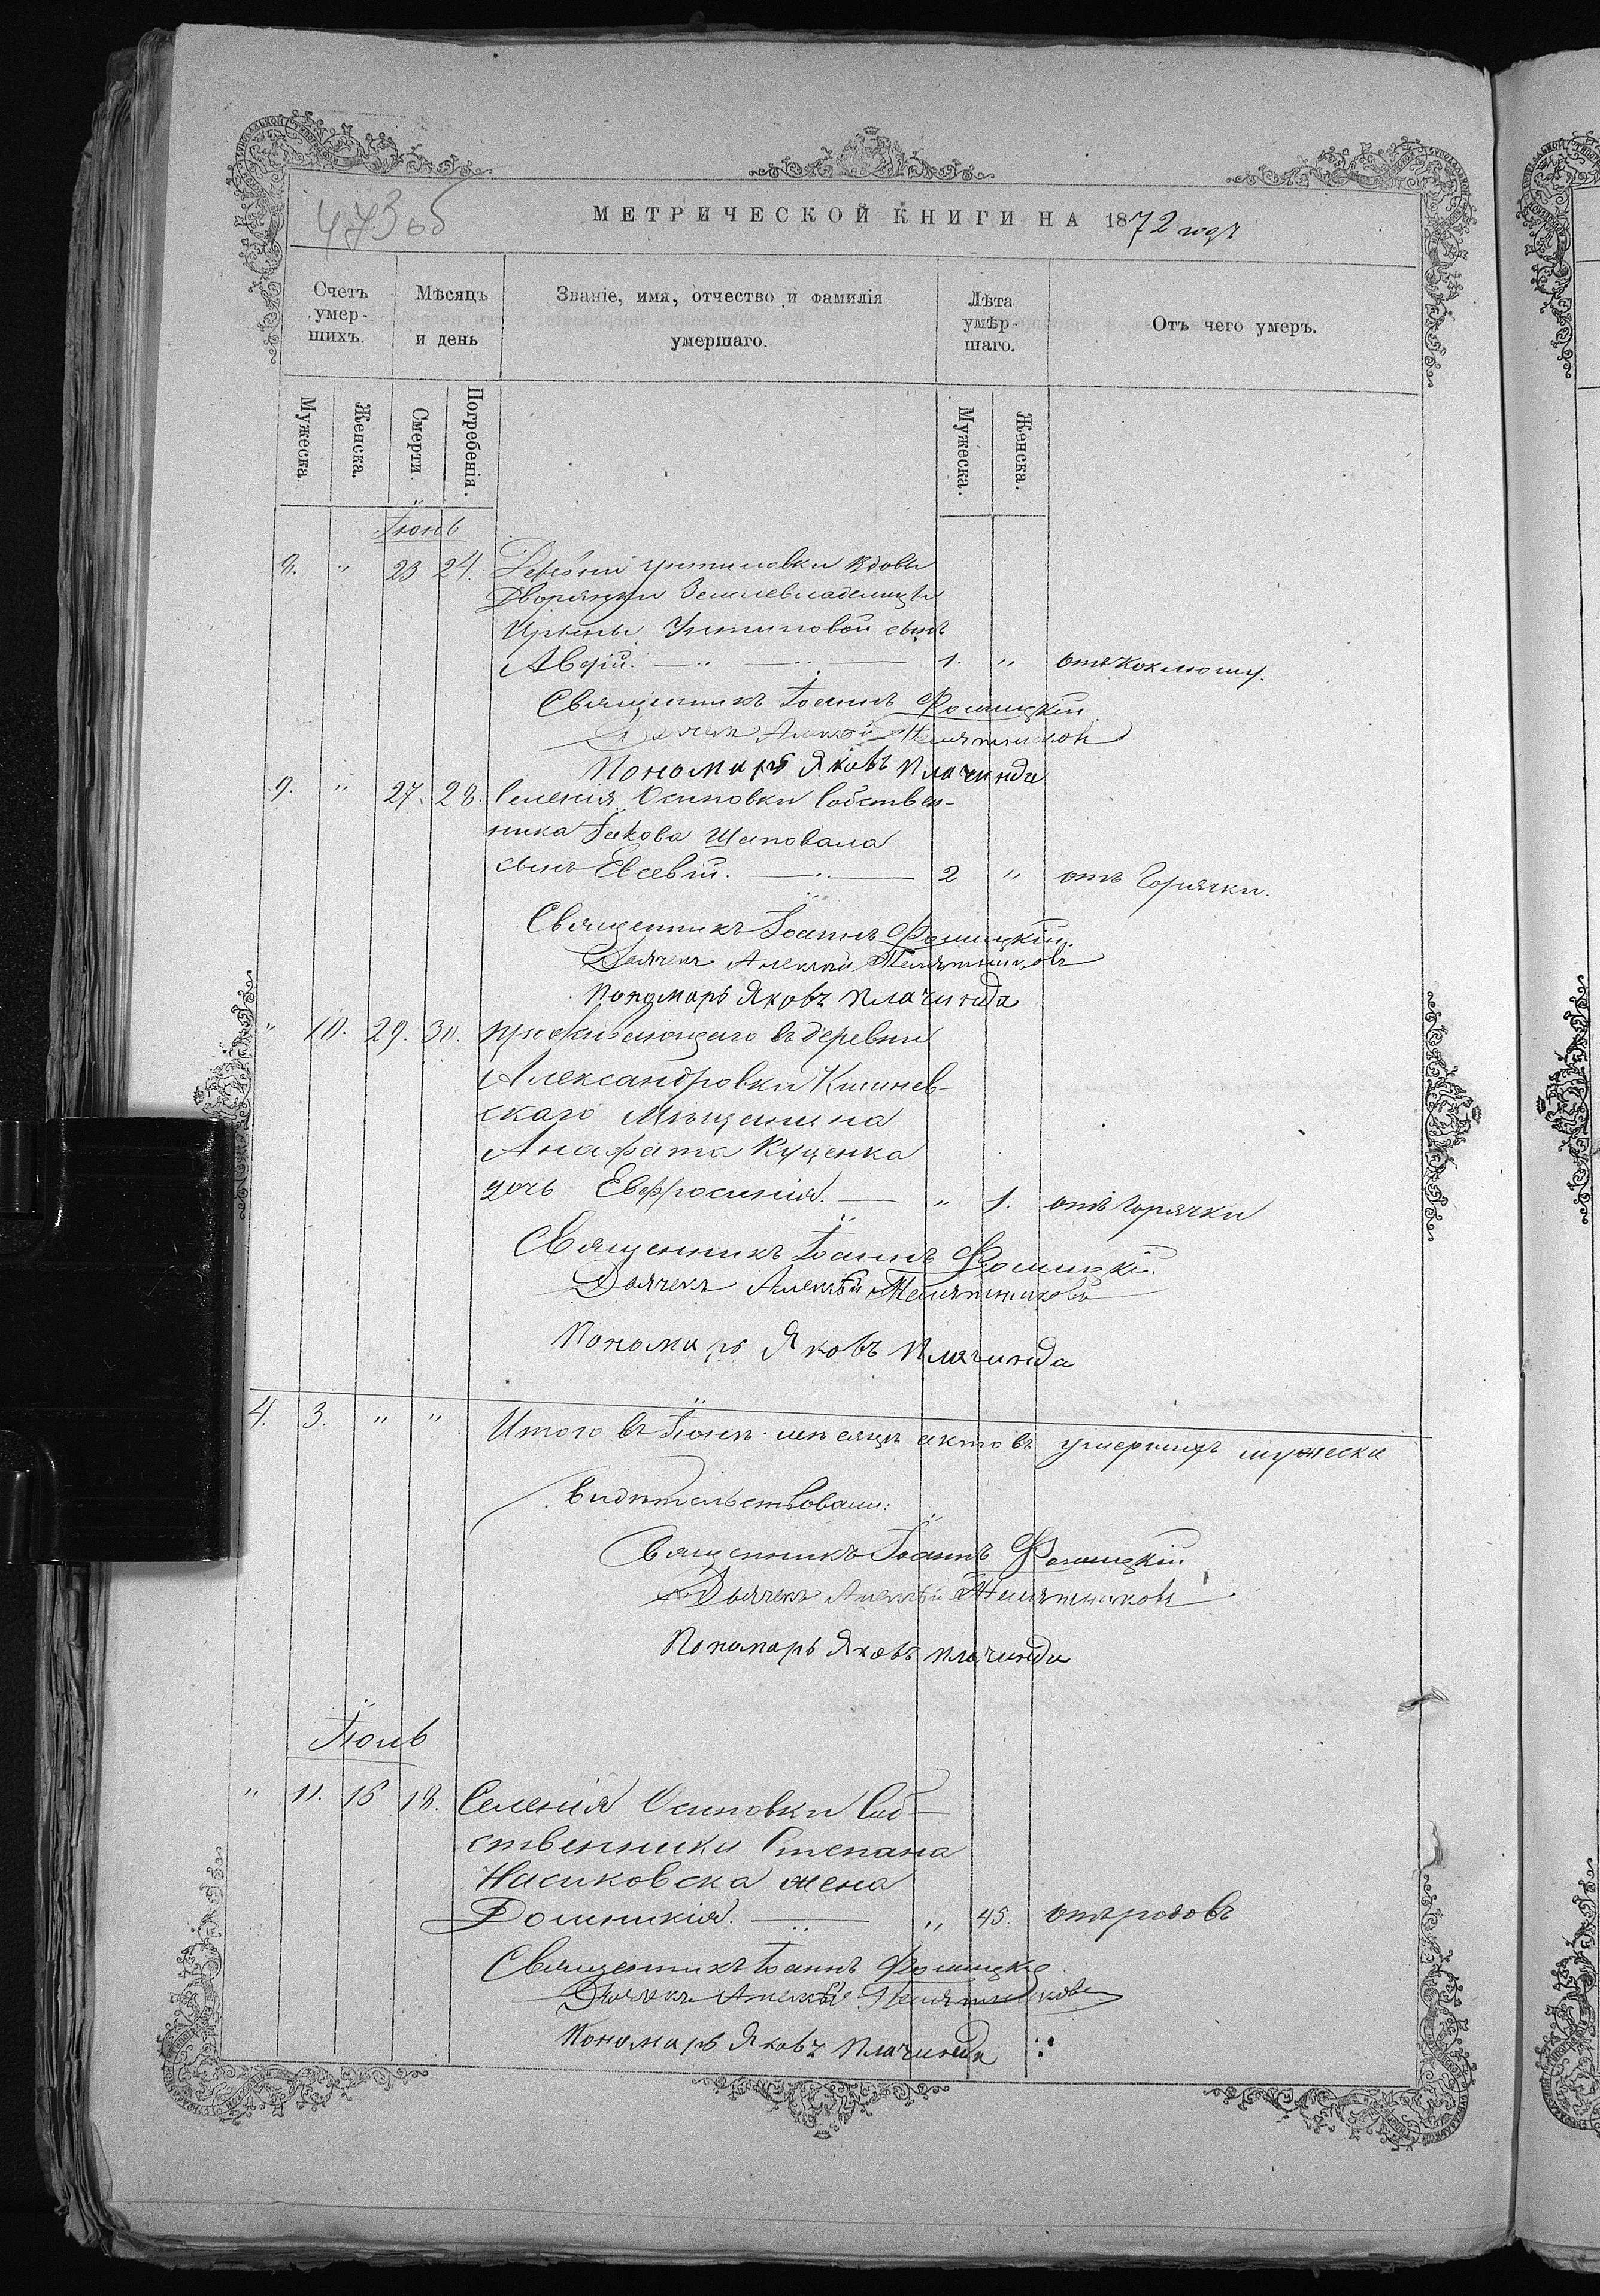 473 об
МЕТРИЧЕСКОЙ КНИГИ НА 1872 годъ
Счетъ умер-шихъ.
Мѣсяцъ и день
Званіе, имя, отчество и фамилія умершаго.
Лѣта умѣр-шаго.
Отъ чего умеръ.
Мужеска.
Женска.
Смерти.
Погребенія.
Мужеска.
Женска.
Іюнь
8. " 23 24. вдовы
Дворянки Землевладелицы
Ирины Устиновой сынъ
1. " отъ коклюшу.
Священникъ Іоаннъ Фомицкій
Дьячекъ Алексѣй Телятниковъ
Пономарь Яковъ Плачинда
9. " 27. 28. Селенія Осиповки Собствен-
ника Іакова Шаповала
сынъ Евсевій. 2 " отъ Горячки.
Священникъ Іоаннъ Фомицкій.
Дьячекъ Алексѣй Телятниковъ
Пономарь Яковъ Плачинда
" 10. 29. 30. проживающаго въ деревни
Александровки Кишинев-
скаго Мѣщанина
Куценка
дочь Евфросинія. " 1. отъ горячки
Священникъ Іоаннъ Фомицкій.
Дьячекъ Алексѣй Телятниковъ
Пономарь Яковъ Плачинда
4. 3. " " Итого въ Іюнѣ мѣсяцѣ актовъ умершихъ мужеска
Свидѣтельствовали:
Священникъ Іоаннъ Фомицкій
Дьячекъ Алексѣй Телятниковъ
Пономарь Яковъ Плачинда
Іюль
" 11. 16 18. Селенія Осиповки Соб-
ственники Степана
жена
Домникія. " 45. отъ родовъ
Священникъ Іоаннъ Фомицкій
Дьячекъ Алексѣй Телятниковъ
Пономарь Яковъ Плачинда